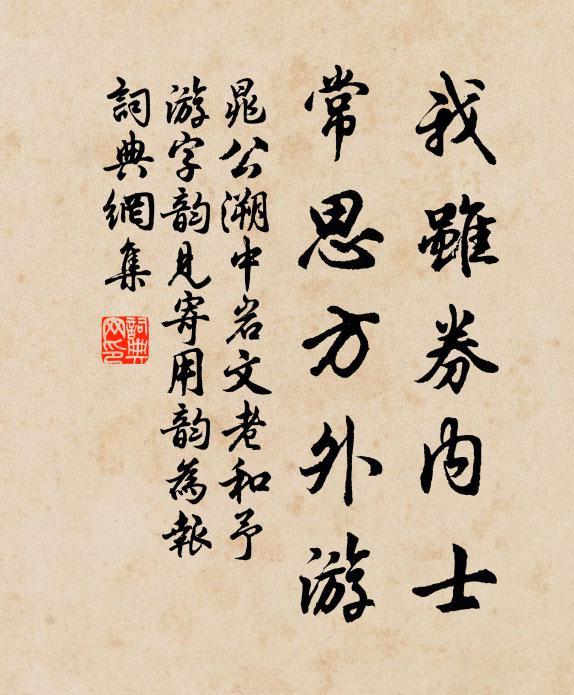 我雖券内士
常思方外游
晁公溯中岩文老和予
游字韵見寄用韵為報
詞典網集
詞典网印